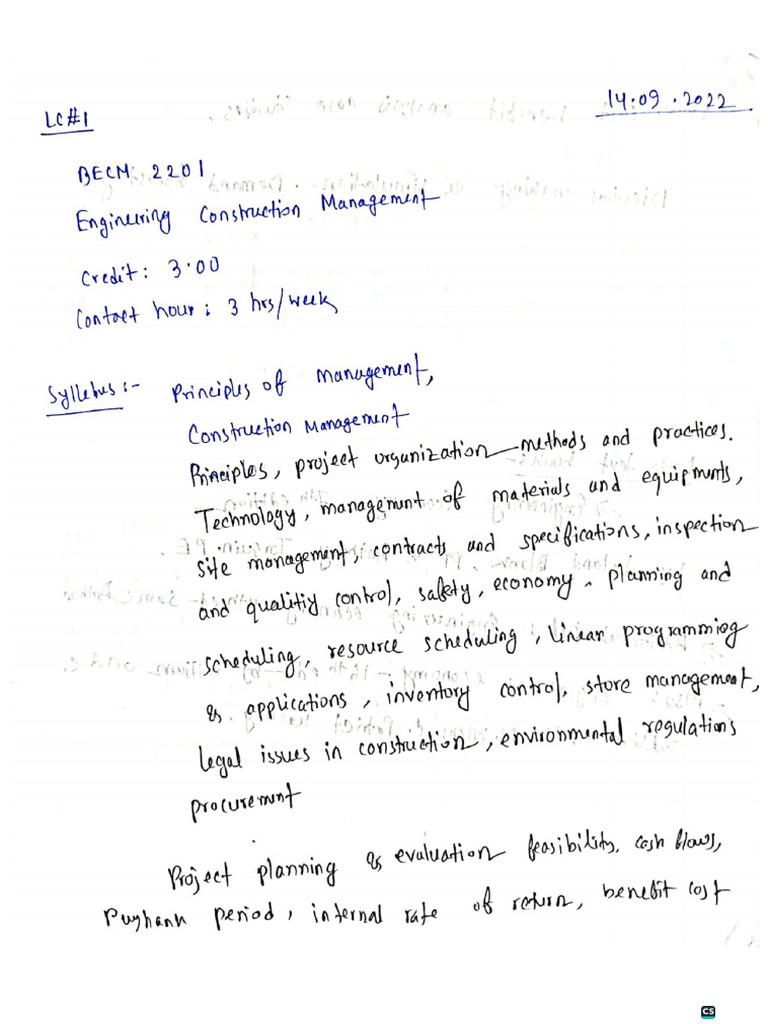 LC#1
14.09.2022
BECM: 2201
Engineering Construction Management
Credit: 3.00
Contact hour: 3 hrs/week
Syllebus:- Principles of Management,
Construction Management
Principles, project organization methods and practices.
Technology, management of materials and equipments,
site management, contracts and specifications, inspection
and qualitiy control, safety, economy, planning and
scheduling, resource scheduling, linear programming
& applications, inventory control, store management,
legal issues in construction, environmental regulations
procurement
Project planning & evaluation feasibility, cash flows,
period, internal rate of return, benefit cost
CS